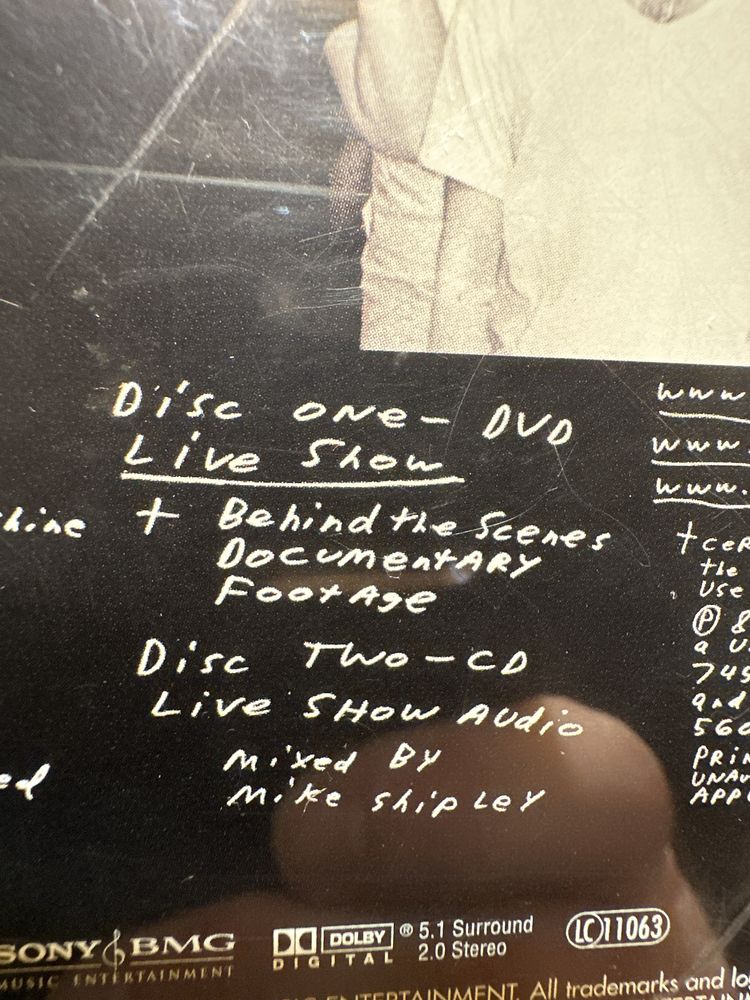 Disc ONE- DVD
Live Show
+ Behind the Scenes
DOCUMENTARY
FootAge
Disc TWO-CD
Live SHOW Audio
Mixed BY
Mike Shipley
www
www.
www.
the
use
Ⓟ 8
a
745
and
560
SONY BMG
MUSIC ENTERTAINMENT
DOLBY
DIGITAL
® 5.1 Surround
2.0 Stereo
LC 11063
ENTERTAINMENT. All trademarks and lo